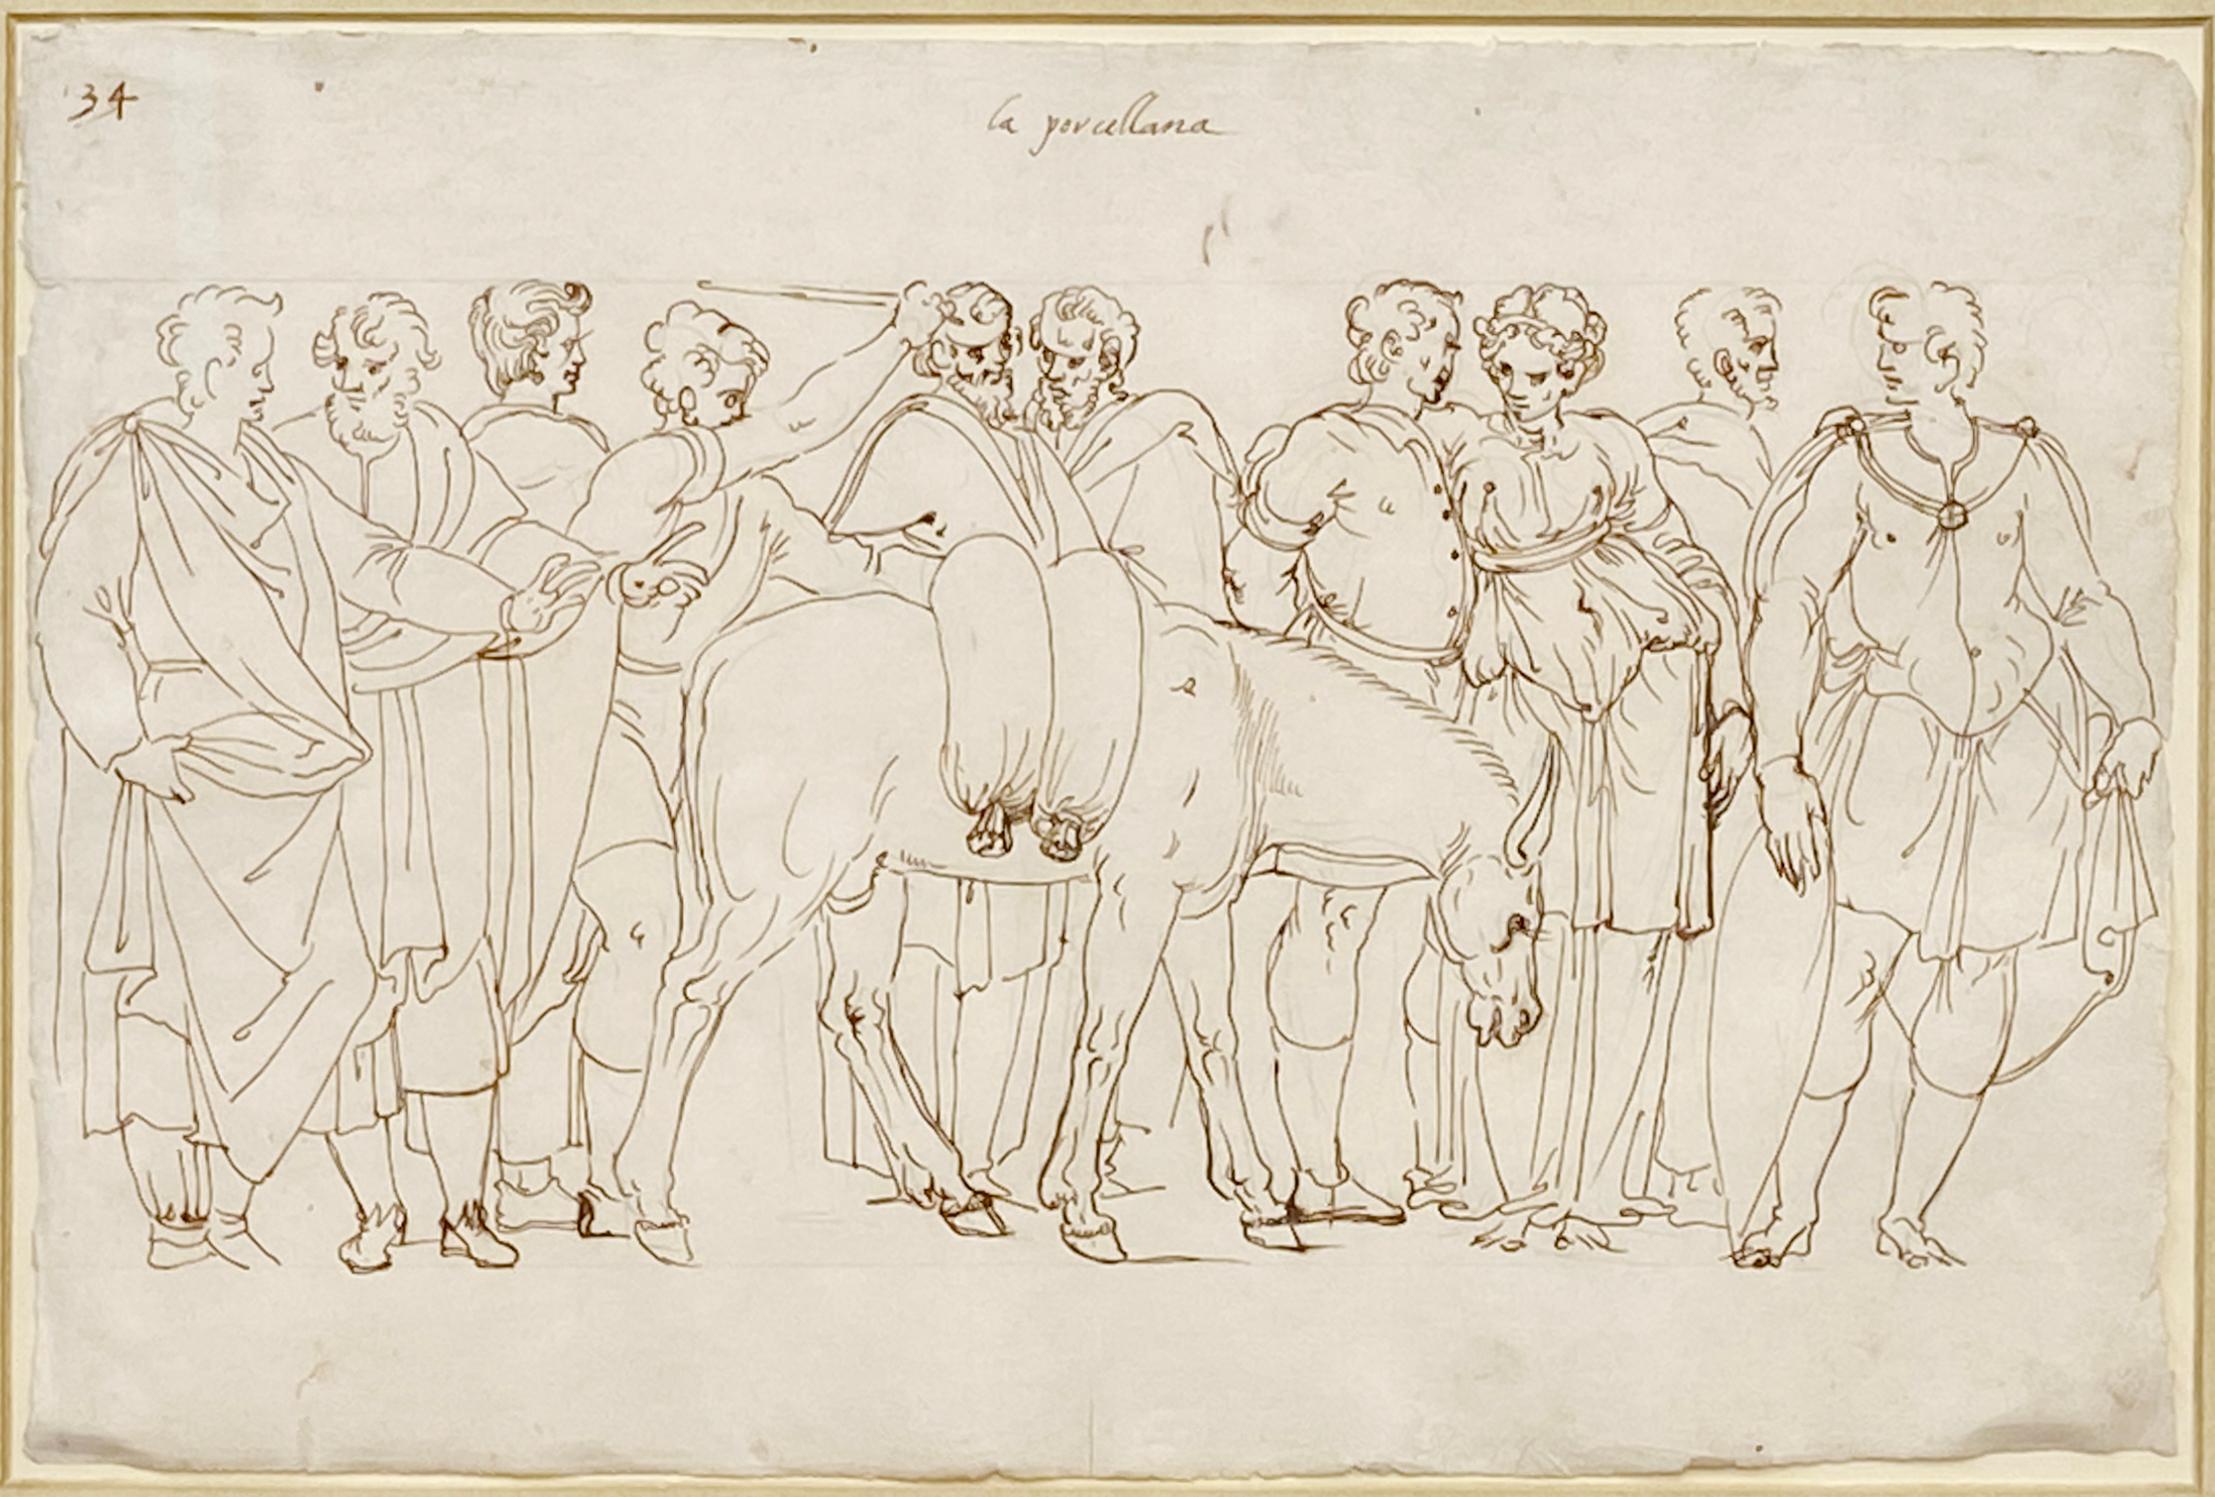 34
la porcellana